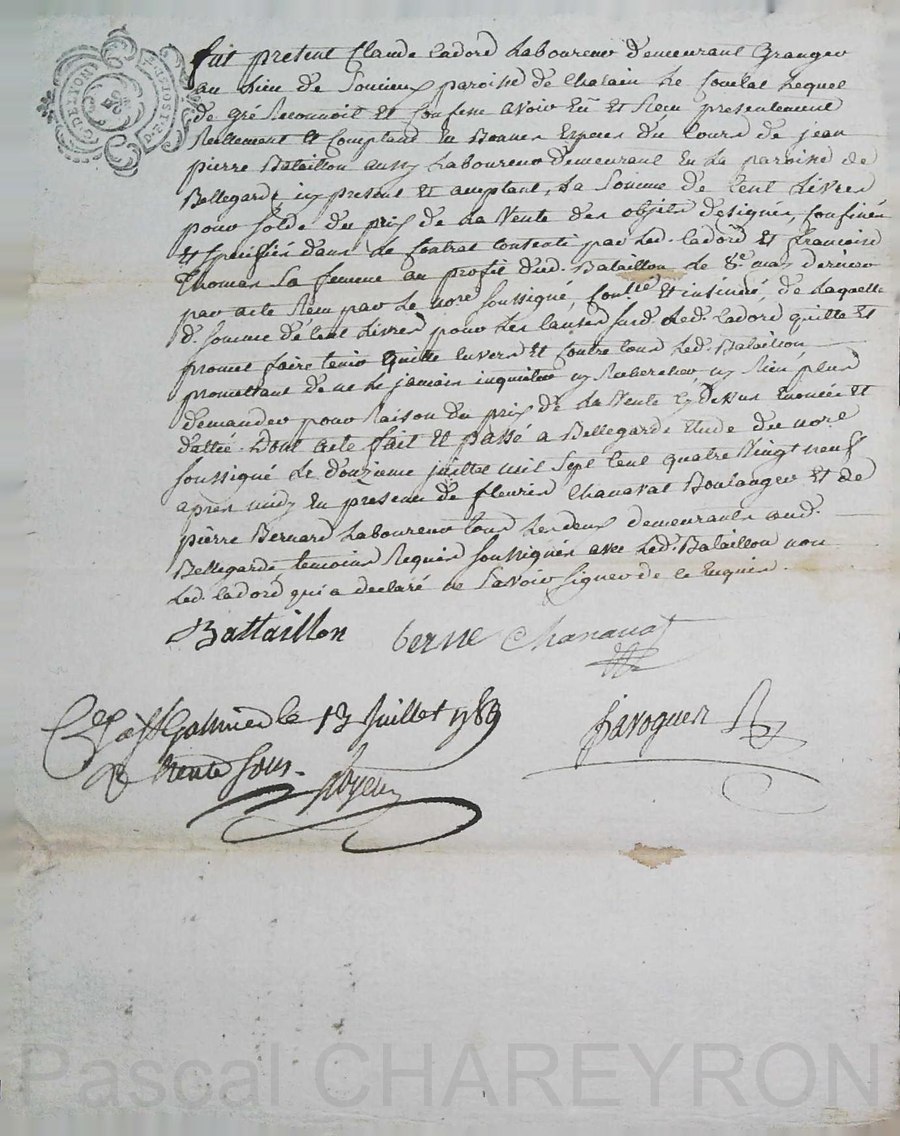 G. DE LYON
fut présent Claude Cadord Laboureur demeurant Granger
au lieu de Soucieux paroisse de Chalain Le Comtal Lequel
de gré Reconnoit et Confesse avoir Eû et Reçu présentement
Reellement et Comptant en Bonnes Especes du Cours de jean
pierre Bataillon aussy Laboureur demeurant En La paroisse de
Bellegarde, icy present et acceptant, La Somme de Cent Livres
pour Solde du prix de La Vente des objets désignés, Confinés
et spécifiés dans Le Contrat Consenti par Led. Cadord et françoise
Thomas Sa femme au profit dud. Bataillon le 8e may dernier
par acte Reçu par Le nore soussigné, Conllé et insinué, de Laquelle
d. somme de Cent Livres pour les causes susd. Led. Cadord quitte et
promet faire tenir Quitte Envers et Contre tous Led. Bataillon
promettant de ne Le jamais inquieter ny Rechercher ny Rien plus
demander pour Raison du prix de La Vente Cy dessus Enoncée et
dattée. Dont acte fait et passé a Bellegarde Etude du nore
soussigné Le douzieme juillet mil Sept Cent quatre Vingt neuf
après midy En présence de fleuris Chanavat Boulanger et de
pierre Bernard Laboureur tous Les deux demeurants aud.
Bellegarde temoins Requis Soussignés avec Led. Bataillon non
Led. Cadord qui a declaré ne Savoir Signer de ce Enquis.
Battaillon Chanavat
Javogues
à St Galmier le 13 Juillet 1789
R trente sous.
Pascal CHAREYRON